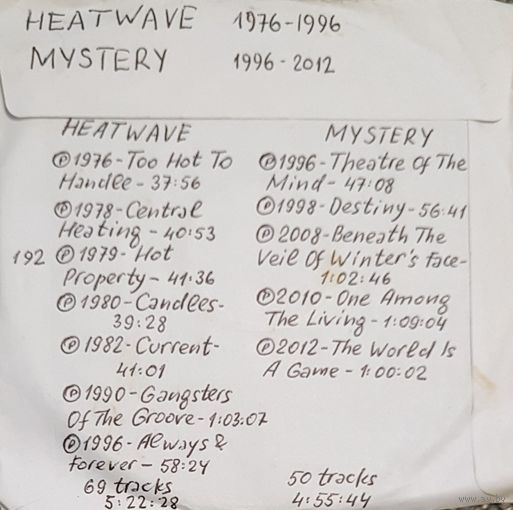 HEATWAVE 1976-1996
MYSTERY 1996-2012
HEATWAVE
℗1976-Too Hot To
Handle-37:56
℗1978-Central
Heating-40:53
192 ℗1979-Hot
Property-41:36
℗1980-Candles-
39:28
℗1982-Current-
41:01
℗1990-Gangsters
Of The Groove-1:03:07
℗1996-Always &
Forever-58:24
69 tracks
5:22:28
MYSTERY
℗1996-Theatre Of The
Mind-47:08
℗1998-Destiny-56:41
℗2008-Beneath The
Veil Of Winter's Face-
1:02:46
℗2010-One Among
The Living-1:09:04
℗2012-The World Is
A Game-1:00:02
50 tracks
4:55:44